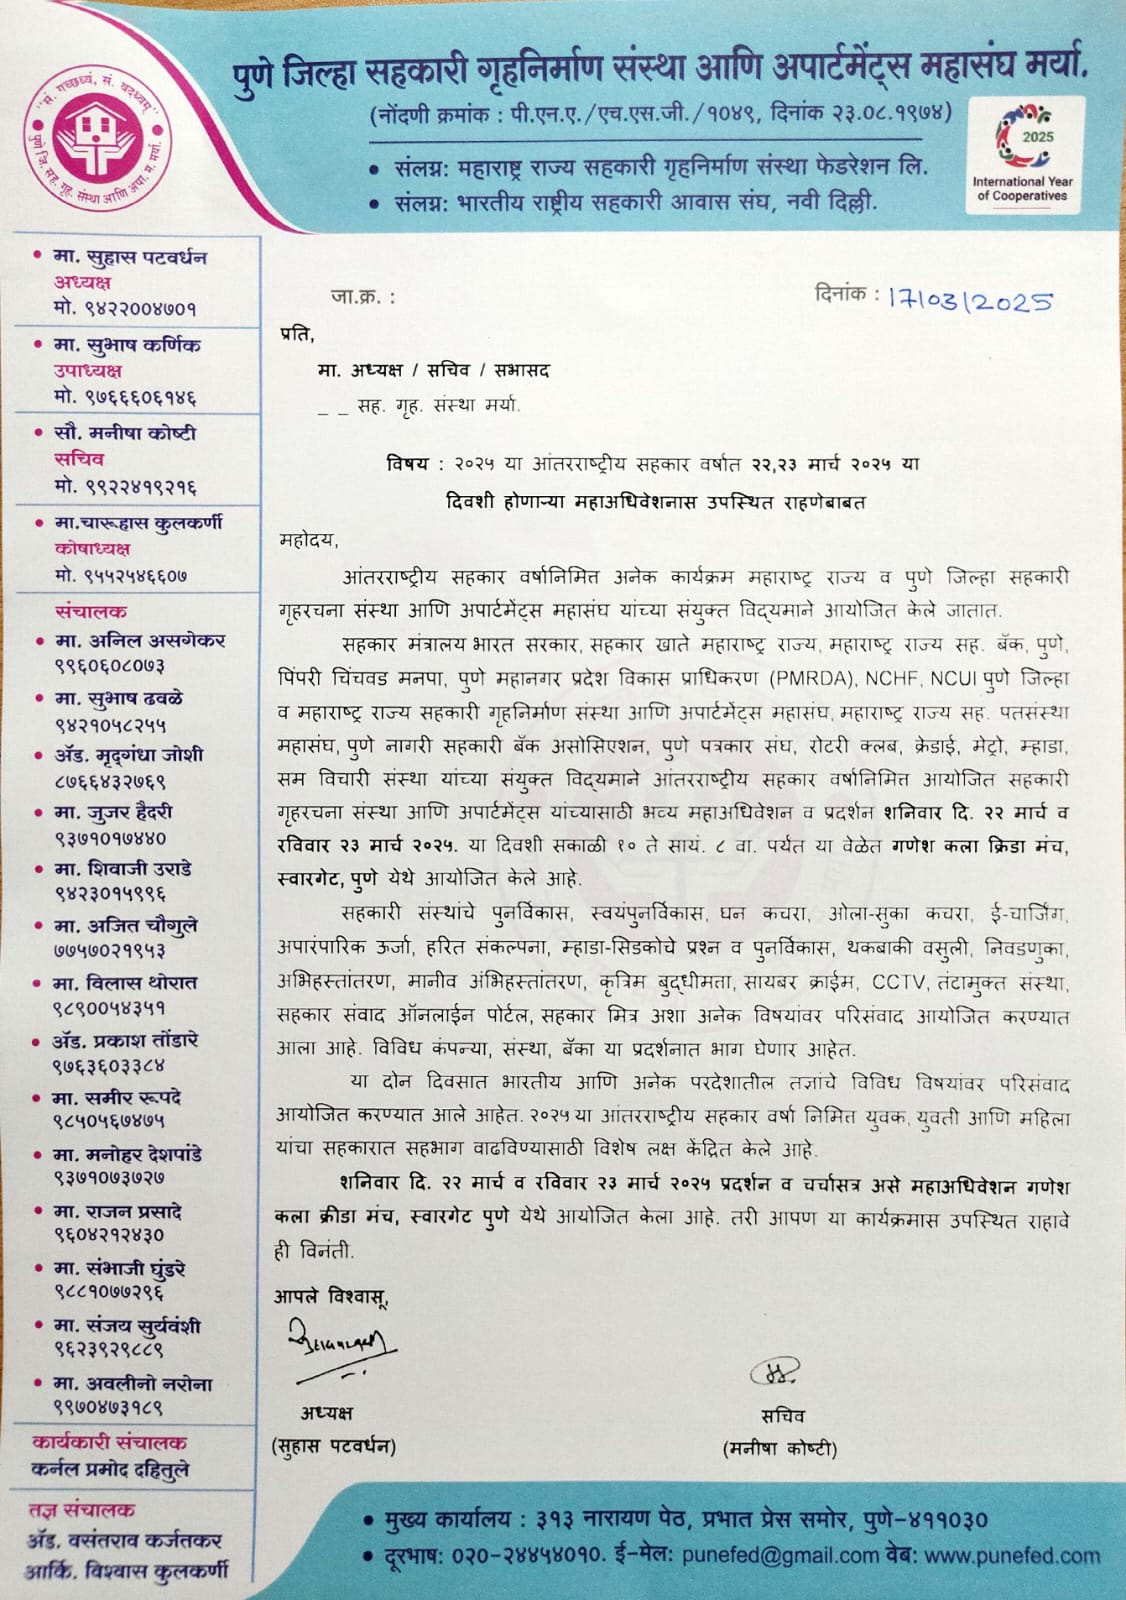 पुणे जिल्हा सहकारी गृहनिर्माण संस्था आणि अपार्टमेंट्स महासंघ मर्या.
(नोंदणी क्रमांक : पी.एन.ए./एच.एस.जी./१०४९, दिनांक २३.०८.१९७४)
• संलग्न: महाराष्ट्र राज्य सहकारी गृहनिर्माण संस्था फेडरेशन लि.
• संलग्न: भारतीय राष्ट्रीय सहकारी आवास संघ, नवी दिल्ली.
"सं. गच्छध्वं, सं. वदध्वम्"
पुणे जि. सह. गृह. संस्था आणि अपा. म. मर्या.
2025
International Year
of Cooperatives
• मा. सुहास पटवर्धन
अध्यक्ष
मो. ९४२२००४७०१
• मा. सुभाष कर्णिक
उपाध्यक्ष
मो. ९७६६६०६१४६
• सौ. मनीषा कोष्टी
सचिव
मो. ९९२२४१९२१६
• मा.चारूहास कुलकर्णी
कोषाध्यक्ष
मो. ९५५२५४६६०७
संचालक
• मा. अनिल असगेकर
९९६०६०८०७३
• मा. सुभाष ढवळे
९४२१०५८२५५
• अ‍ॅड. मृद्गंधा जोशी
८७६६४३२७६९
• मा. जुजर हैदरी
९३७१०१७४४०
• मा. शिवाजी उराडे
९४२३०१५९९६
• मा. अजित चौगुले
७७५७०२१९५३
• मा. विलास थोरात
९८९००५४३५१
• अ‍ॅड. प्रकाश तोंडारे
९७६३६०३३८४
• मा. समीर रूपदे
९८५०५६७४७५
• मा. मनोहर देशपांडे
९३७१०७३७२७
• मा. राजन प्रसादे
९६०४२१२४३०
• मा. संभाजी घुंडरे
९८८१०७७२९६
• मा. संजय सुर्यवंशी
९६२३९२९८८९
• मा. अवलीनो नरोना
९९७०४७३१८९
कार्यकारी संचालक
कर्नल प्रमोद दहितुले
तज्ञ संचालक
अ‍ॅड. वसंतराव कर्जतकर
आर्कि. विश्वास कुलकर्णी
जा.क्र. :
दिनांक : 17/03/2025
प्रति,
मा. अध्यक्ष / सचिव / सभासद
_ _ सह. गृह. संस्था मर्या.
विषय : २०२५ या आंतरराष्ट्रीय सहकार वर्षात २२,२३ मार्च २०२५ या
दिवशी होणाऱ्या महाअधिवेशनास उपस्थित राहणेबाबत
महोदय,
आंतरराष्ट्रीय सहकार वर्षानिमित्त अनेक कार्यक्रम महाराष्ट्र राज्य व पुणे जिल्हा सहकारी
गृहरचना संस्था आणि अपार्टमेंट्स महासंघ यांच्या संयुक्त विद्यमाने आयोजित केले जातात.
सहकार मंत्रालय भारत सरकार, सहकार खाते महाराष्ट्र राज्य, महाराष्ट्र राज्य सह. बँक, पुणे,
पिंपरी चिंचवड मनपा, पुणे महानगर प्रदेश विकास प्राधिकरण (PMRDA), NCHF, NCUI पुणे जिल्हा
व महाराष्ट्र राज्य सहकारी गृहनिर्माण संस्था आणि अपार्टमेंट्स महासंघ, महाराष्ट्र राज्य सह. पतसंस्था
महासंघ, पुणे नागरी सहकारी बँक असोसिएशन, पुणे पत्रकार संघ, रोटरी क्लब, क्रेडाई, मेट्रो, म्हाडा,
सम विचारी संस्था यांच्या संयुक्त विद्यमाने आंतरराष्ट्रीय सहकार वर्षानिमित्त आयोजित सहकारी
गृहरचना संस्था आणि अपार्टमेंट्स यांच्यासाठी भव्य महाअधिवेशन व प्रदर्शन शनिवार दि. २२ मार्च व
रविवार २३ मार्च २०२५. या दिवशी सकाळी १० ते सायं. ८ वा. पर्यंत या वेळेत गणेश कला क्रिडा मंच,
स्वारगेट, पुणे येथे आयोजित केले आहे.
सहकारी संस्थांचे पुनर्विकास, स्वयंपुनर्विकास, घन कचरा, ओला-सुका कचरा, ई-चार्जिंग,
अपारंपारिक ऊर्जा, हरित संकल्पना, म्हाडा-सिडकोचे प्रश्न व पुनर्विकास, थकबाकी वसुली, निवडणुका,
अभिहस्तांतरण, मानीव अंभिहस्तांतरण, कृत्रिम बुद्धीमता, सायबर क्राईम, CCTV, तंटामुक्त संस्था,
सहकार संवाद ऑनलाईन पोर्टल, सहकार मित्र अशा अनेक विषयांवर परिसंवाद आयोजित करण्यात
आला आहे. विविध कंपन्या, संस्था, बँका या प्रदर्शनात भाग घेणार आहेत.
या दोन दिवसात भारतीय आणि अनेक परदेशातील तज्ञांचे विविध विषयांवर परिसंवाद
आयोजित करण्यात आले आहेत. २०२५ या आंतरराष्ट्रीय सहकार वर्षा निमित्त युवक, युवती आणि महिला
यांचा सहकारात सहभाग वाढविण्यासाठी विशेष लक्ष केंद्रित केले आहे.
शनिवार दि. २२ मार्च व रविवार २३ मार्च २०२५ प्रदर्शन व चर्चासत्र असे महाअधिवेशन गणेश
कला क्रीडा मंच, स्वारगेट पुणे येथे आयोजित केला आहे. तरी आपण या कार्यक्रमास उपस्थित राहावे
ही विनंती.
आपले विश्वासू,
अध्यक्ष
(सुहास पटवर्धन)
सचिव
(मनीषा कोष्टी)
• मुख्य कार्यालय : ३१३ नारायण पेठ, प्रभात प्रेस समोर, पुणे-४११०३०
• दूरभाष: ०२०-२४४५४०१०. ई-मेल: punefed@gmail.com वेब: www.punefed.com